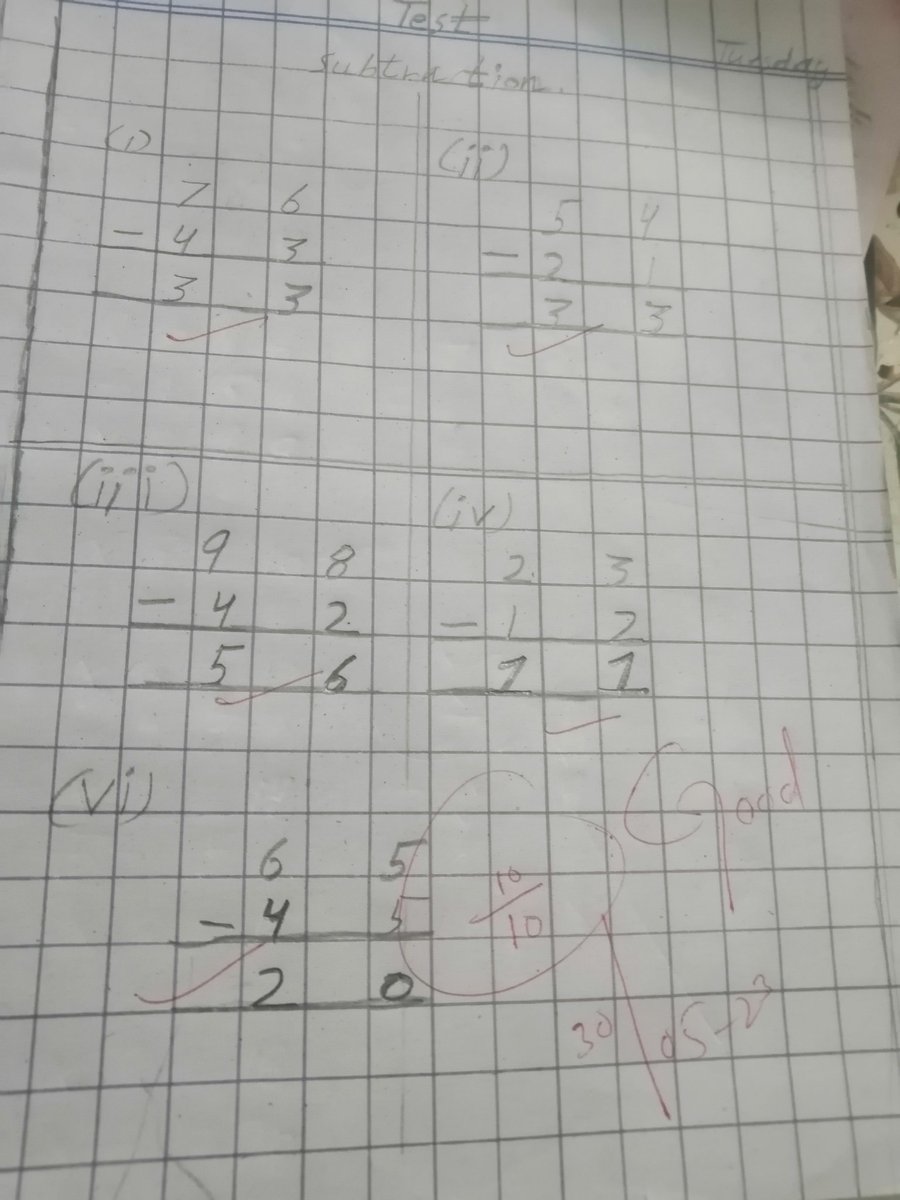 Test
Tuesday
Subtraction.
(i)
7 6
- 4 3
3 3
(ii)
5 4
- 2 1
3 3
(iii)
9 8
- 4 2
5 6
(iv)
2 3
- 1 2
1 1
(vi)
6 5
- 4 5
2 0
10/10
Good
30/05-23